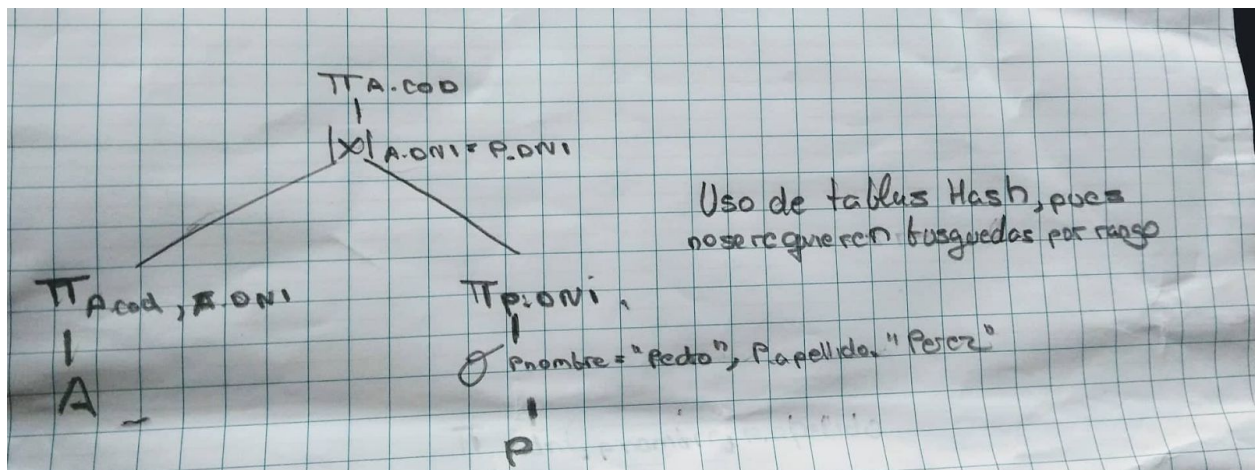 π A.COD
|X| A.DNI = P.DNI
Uso de tablas Hash, pues
no se requieren busquedas por rango
π A.cod, A.DNI
π P.DNI.
σ Pnombre = "Pedro", P.apellido = "Perez"
A
P